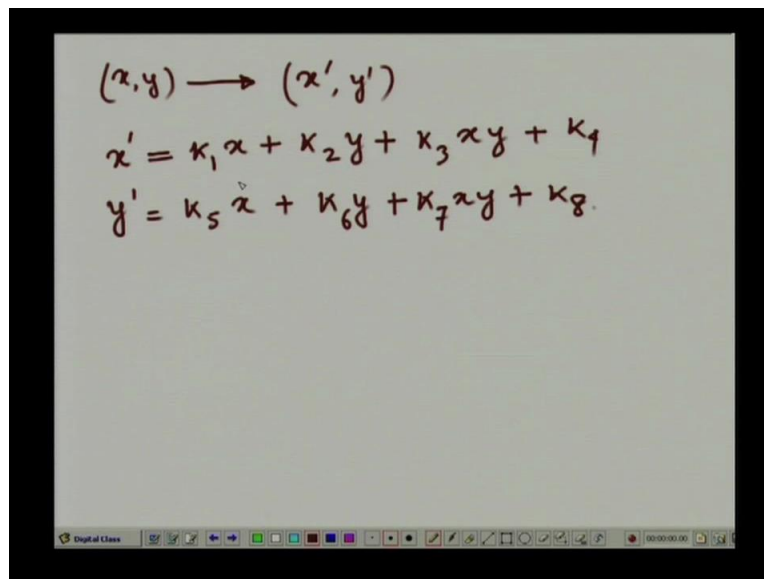 (x, y) ⟶ (x', y')
x' = K₁x + K₂y + K₃xy + K₄
y' = K₅x + K₆y + K₇xy + K₈.
Digital Class 00:00:00.00